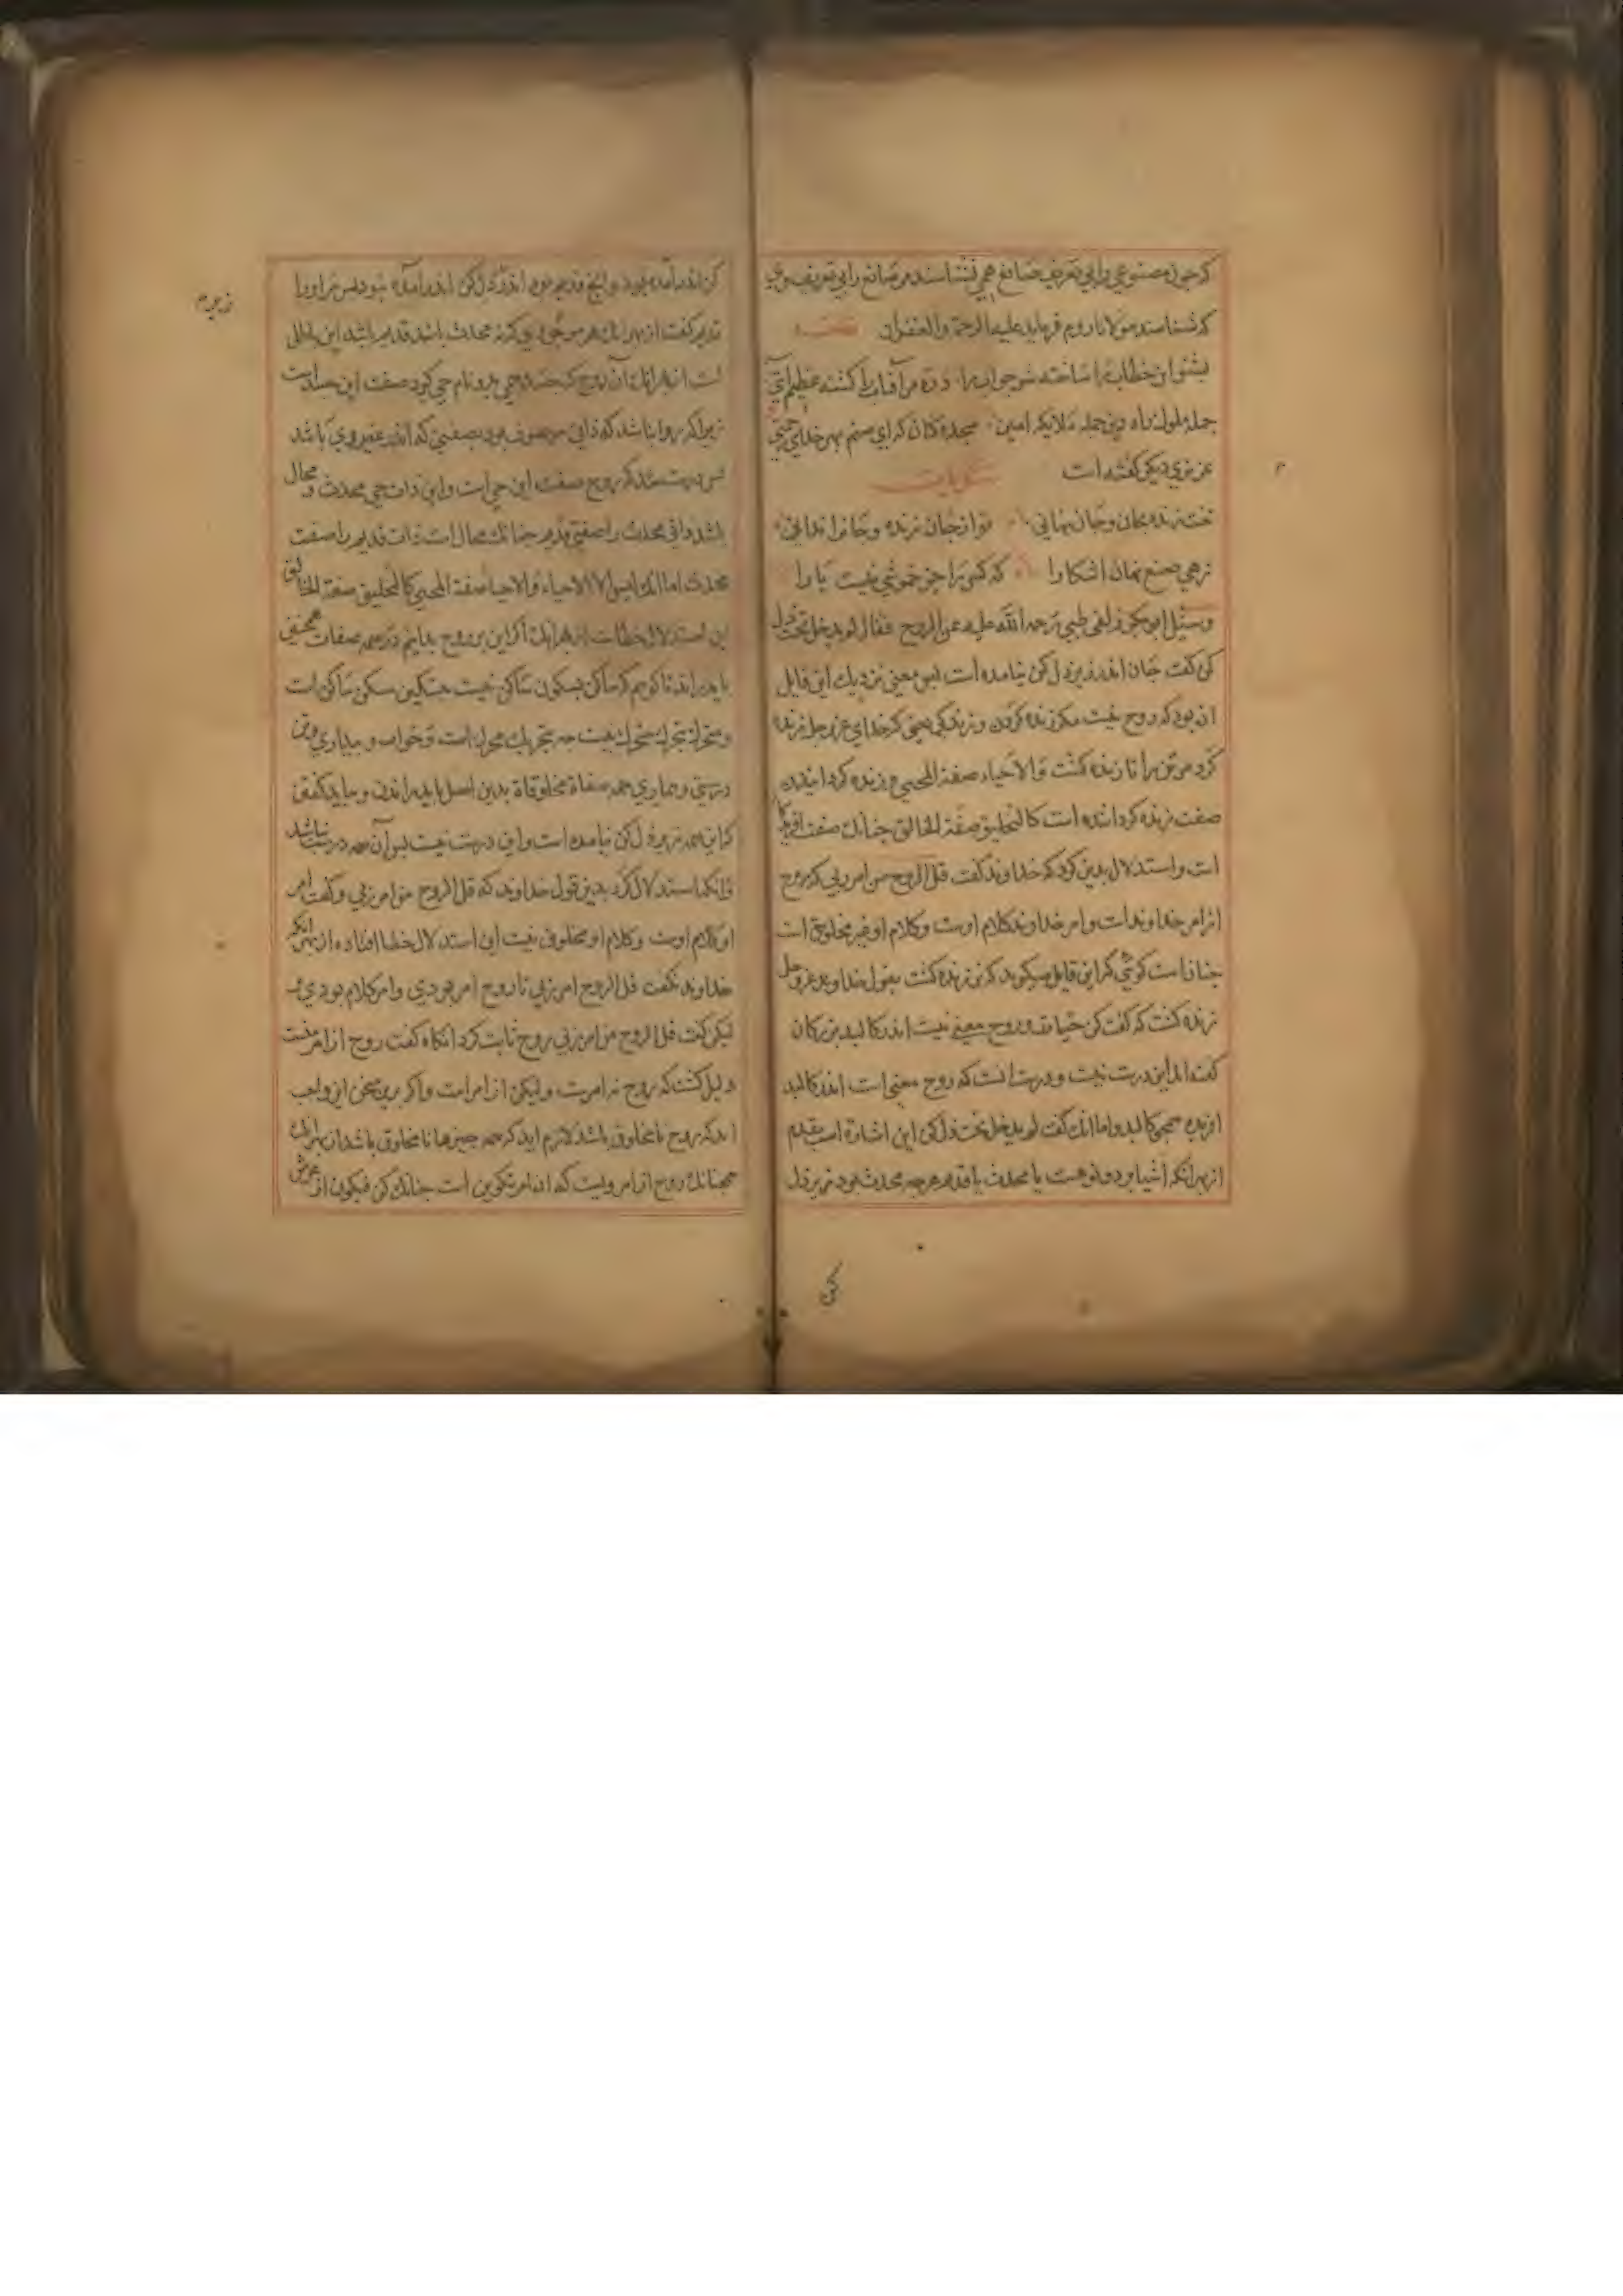 که چون مصنوعی را بی تعریف صانع همی نشناسند مر صانع را بی تعریف وی
که شناسند مولانا روم فرماید علیه الرحمة والغفران
بشنو این خطاب را ساخته شو جواب را ذره مر آفتاب را گشته عظیم آیتی
جمله ملوک راه دین جمله ملائکه امین سجده کنان که ای صنم بهر خدای رحمتی
عزیزی دیگر گفته است
تنت زنده بجان و جان نهانی تو از جان زنده و جانرا ندانی
زهی صنع نهان آشکارا که کس را جز خموشی نیست یارا
وسئل ابوبکر قحطبی رحمة الله علیه عن الروح فقال لم یدخل تحت ذل
کن گفت جان اندر زیر ذل کن نیامده است پس معنی نزدیک این قایل
آن بود که روح نیست مگر زنده کردن و زندگی معنی که خدای عز و جل زنده
کرد مر تن را تا زنده گشت والاحیاء صفة المحیی و زنده گردانیدن
صفت زنده گرداننده است کالتخلیق صفة الخالق چنانک صفت
است و استدلال بدین کرد که خداوند گفت قل الروح من امر ربی که روح
از امر خداوند است و امر خداوند کلام اوست و کلام او غیر مخلوق است
چنانست گوئی که این قایل میگوید که تن زنده گشت بقول خداوند عز وجل
زنده گشت که گفت کن حیا و روح معنی نیست اندر کالبد بزرگان
گفته اند این درست نیست و درست آنست که روح معنی است اندر کالبد
آفریده همچو کالبد و اما آنک گفت لم یدخل تحت ذل کن این اشارة است بقدم
از بهر آنکه اشیا بر دو نوعست یا محدث یا قدیم هرچه محدث بود زیر ذل
کن
کن اندر آمده بود و آنچ قدیم بود اندر ذل کن اندر آمده نبود پس مر او را
قدیم گفت از بهر آنک هر موجودی که نه محدث باشد قدیم باشد این باطل
است از بهر آنک آن روح که جسد حی بدو نام حی گیرد صفت این جسد است
زیرا که روا نباشد که ذاتی موصوف بود بصفتی که اندر غیر وی باشد
پس درست شد که روح صفت این حی است و این ذات حی محدث و محال
باشد ذاتی محدث را صفتی قدیم چنانک محال است ذات قدیم را صفت
محدث اما آنک لیس الا الاحیاء والاحیاء صفة المحیی کالتخلیق صفة الخالق
این استدلال خطاست از بهر آنک اگر این بر روح برانیم در همه صفات همچنین
باید راند تا گوییم که ساکن بسکون ساکن نیست بتسکین مسکن ساکن است
و متحرک بتحرک متحرک نیست بتحریک محرک است و خواب و بیداری و تن
درستی و بیماری همه صفاة مخلوقاة بدین اصل باید راندن و بباید گفتن
که این همه زیر ذل کن نیامده است و این درست نیست پس آن همه درست نباشد
و آنکه استدلال کرد بدین قول خداوند که قل الروح من امر ربی و گفت امر
او کلام اوست و کلام او مخلوق نیست این استدلال خطا افتاده از بهر آنکه
خداوند نگفت قل الروح امر ربی تا روح امر بودی و امر کلام بودی
لیکن گفت قل الروح من امر ربی روح ثابت کرد آنگاه گفت روح از امر منست
دلیل گشت که روح نه امرست ولیکن از امر است و اگر برین سخن این واجب
آید که روح نامخلوق باشد لازم آید که همه چیزها نامخلوق باشد از بهر آنک
همچنانک روح از امر ویست که آن امر تکوین است چنانک کن فیکون از عرش